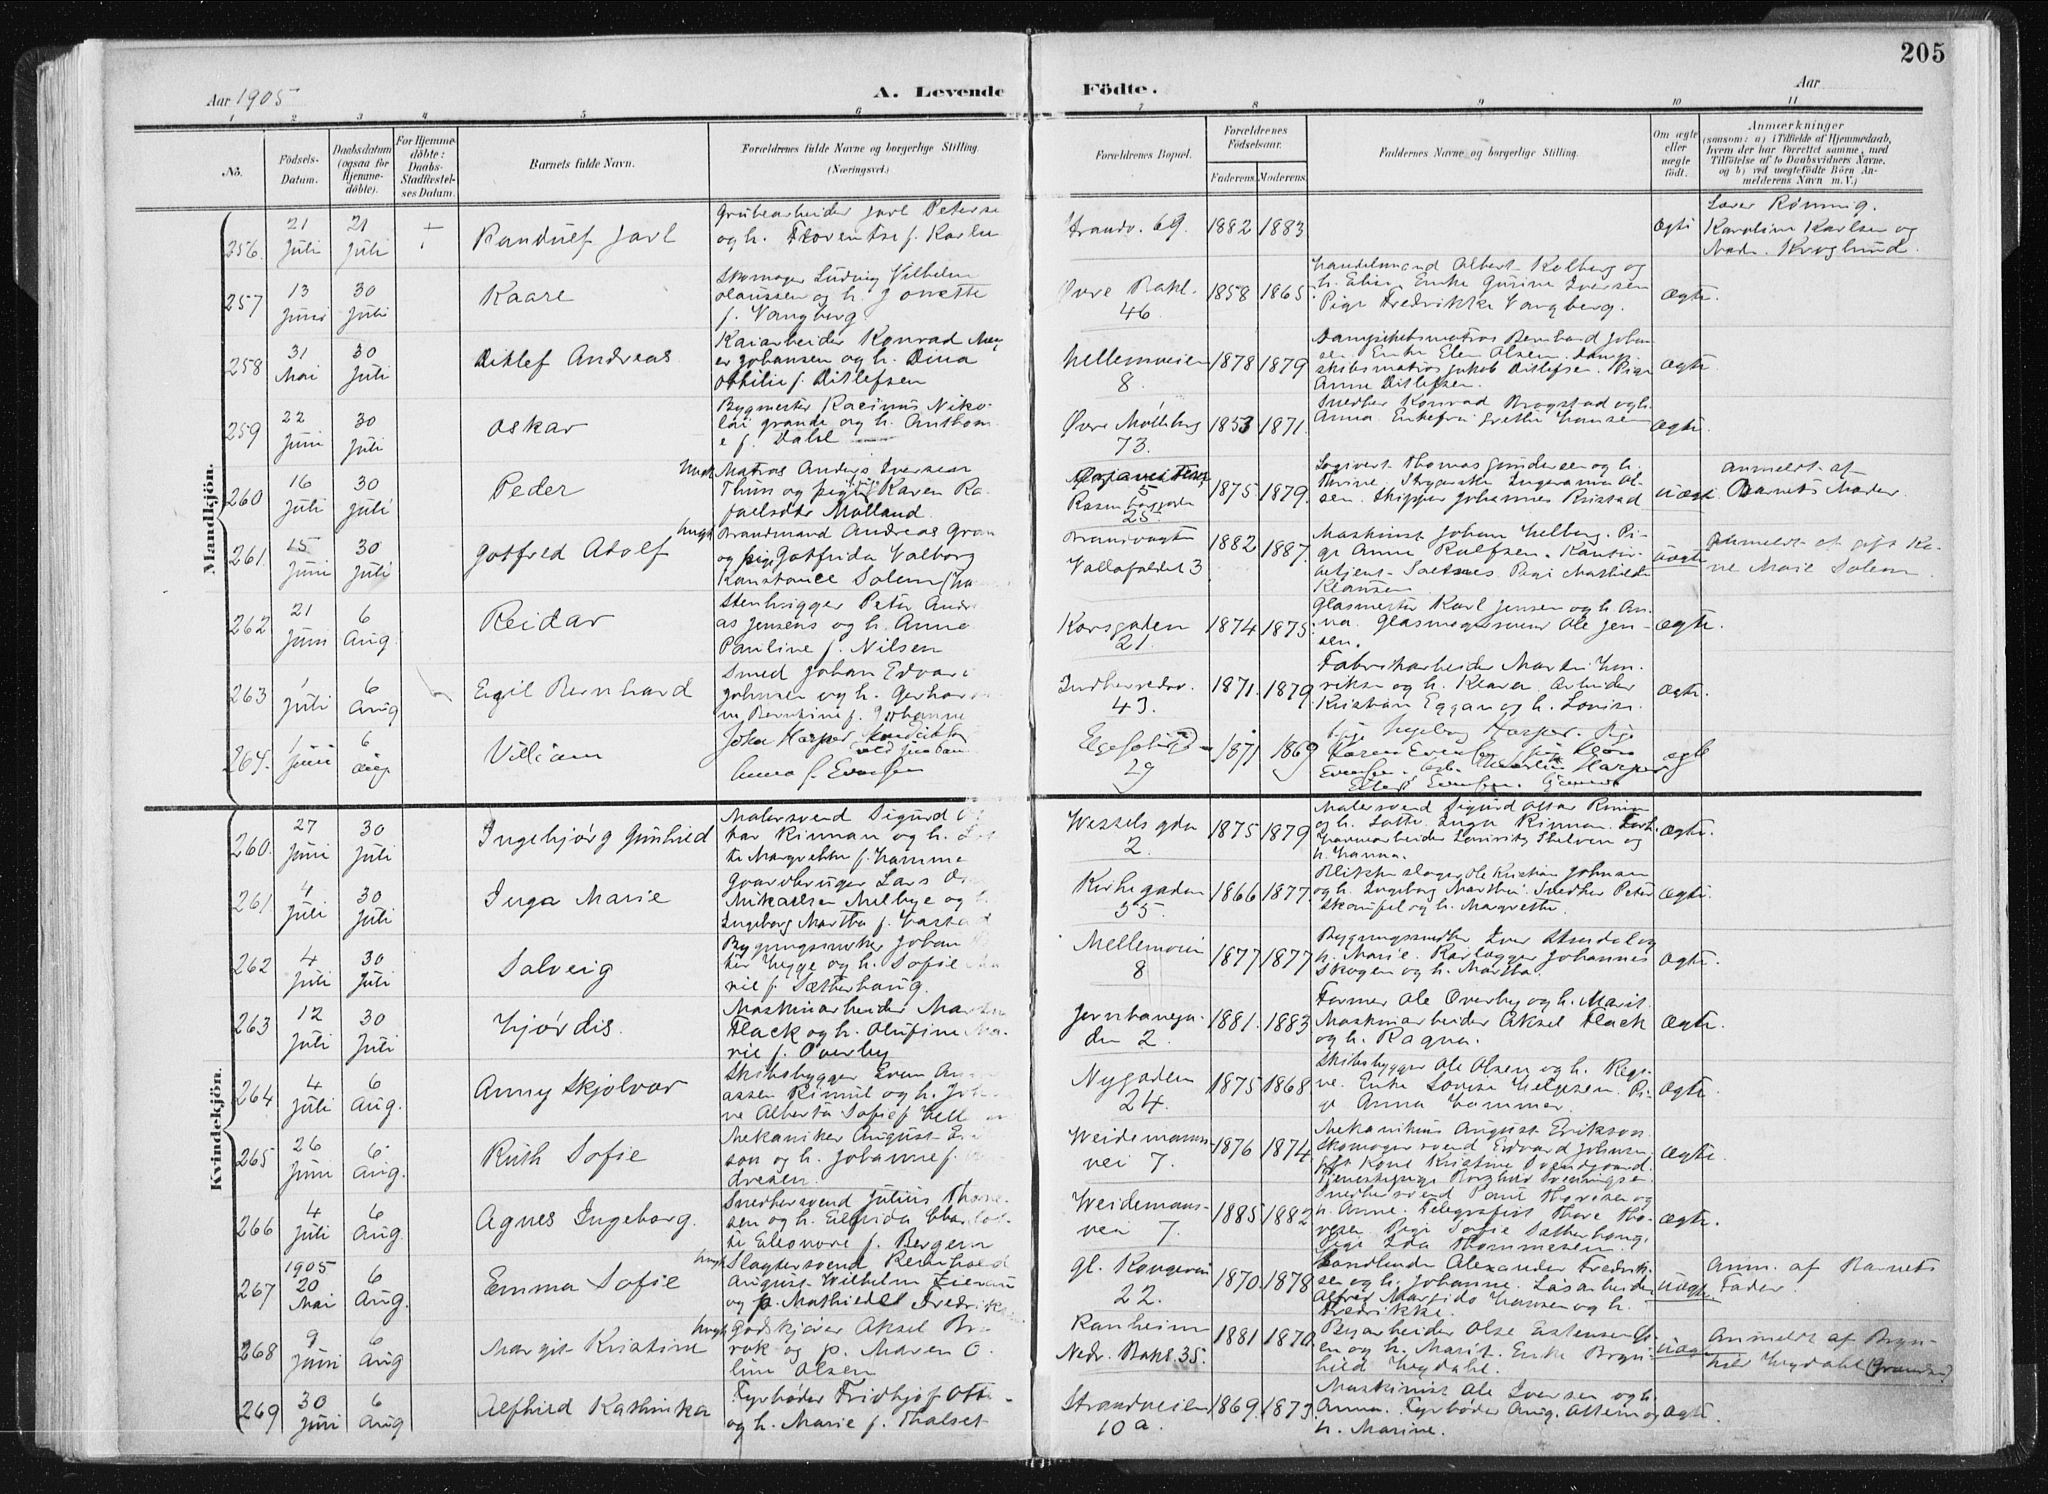 205
Aar 1905
A. Levende Födte.
Aar
1 2 3 4 5 6 7 8 9 10 11
No.
Födsels-Datum.
Daabsdatum (ogsaa for Hjemme-döbte).
For Hjemme-döbte: Daabs-Stadfæstel-ses Datum.
Barnets fulde Navn.
Forældrenes fulde Navne og borgerlige Stilling.
(Næringsvei.)
Forældrenes Bopæl.
Forældrenes Födselsaar.
Faderens. Moderens.
Faddernes Navne og borgerlige Stilling.
Om ægte eller uægte födt.
Anmærkninger
(saasom: a) i Tilfælde af Hjemmedaab, hvem der har forrettet samme, med Tilföielse af to Daabsvidners Navne, og b) ved uægtefödte Börn Anmelderens Navn m. V.)
Mandkjön.
256. 21 Juli 21 Juli + Randulf Jarl
Grubearbeider Jarl Peterse
og h. Florentse f. Karlse
Strandv. 69. 1882 1883 Ægte
Lærer Rönnig.
Karoline Karlsen og
Madr. Kroglund.
257 13 Juni 30 Juli Kaare
Skomager Ludvig Vilhelm
Olaussen og h. Jonette
f. Vangberg
Øvre Bakl. 46 1858 1865
Handelsmand Albert Kolberg og
h. Elisa. Enke Gurine Iversen
Pige Fredrikke Vangberg.
Ægte.
258 31 Mai 30 Juli Ditlef Andreas
Kaiarbeider Konrad Mey
er Johansen og h. Dina
Othilie f. Ditlefsen
Mellemveien 8. 1878 1879
Dampskibsmatros Bernhard Johan
sen. Enke Elen Olsen. Damp
skibsmatros Jakob Ditlefsen. Pige
Anne Ditlefsen.
Ægte.
259 22 Juni 30 Juli Oskar
Bygmester Rasinus Niko-
lai Grande og h. Anthon
e f. Dahl
Øvre Møllebrg 73. 1853 1871.
Snedker Konrad Brogstad og h.
Anna. Enkefru Grethe Hansen
Ægte.
260 16 Juli 30 Juli Peder
Uægte Matros Anders Iversen
Thun og pige Karen Ra-
faelsdtr Molland.
5
25 1875 1879.
Logivert Thomas Gundersen og h.
Thrine. Stryerske Ingeranna Ol-
sen. Skipper Johannes Ristad
Uægte
Anmeldt af
Barnets Moder.
261. 15 Juni 30 Juli Gotfred Adolf
Uægte Brandmand Andreas Gran
og pige Gotfrida Valborg
Konstance Solem
Brandvagten
Vollafaldet 3 1882 1887.
Maskinist Johan Helberg. Pi-
ge Anne Rolfsen. Kontor-
betjent Saetnes. Pige Mathilde
Klausen
Uægte
Anmeldt af gift Ka-
ne Marie Solem.
262 21 Juni 6 Aug. Reidar
Stenhugger Peter Andr
as Jensens og h. Anne
Pauline f. Nilsen
Korsgaden 21. 1874 1875.
Glasmester Karl Jensen og h. An-
na. Glasmagersvend Ole Jen-
sen.
Ægte.
263 1 Juli 6 Aug Eigil Bernhard
Smed Johan Edvar
Johnsen og h. Gerhar
ne Berntine f. Johanne
Indherredsv. 43. 1871. 1879
Fabrikarbeider Martin Hen-
riksen og h. Klara. Arbeider
Kristian Eggan og h. Lovise.
Ægte.
264. 1 Juni 6 Aug Villiam
John Harper
Anna f. Evensen
29 1871 1869
Ingeborg Harper. Pige
ægte
Kvindekjön.
260. 27 Juni 30 Juli Ingebjørg Gunhild
Malersvend Sigurd O
tar Rinnan og h. Lot
te Margrethe f. Hamme
Wessels gda 2. 1875 1879
Malersvend Sigurd Ottar Rinnan
og h. Lotte. Inga Rinnan.
h. Hanna.
Ægte.
261 4 Juli 30 Juli Inga Marie
Gaardbruger Lars
Mikaelsen Melbye og h
Ingeborg Martha f. Harstad
Kirkegaden 55. 1866 1877.
Blikkenslager Ole Kristian Johnsen
og h. Ingeborg Marthea. Snedker Peter
Skampel og h. Margrethe.
Ægte.
262 4 Juli 30 Juli Solveig
Bygningssnedker Johan
ter Hegge og h. Sofie
rie f. Sætherhaug.
Mellemveien 8 1877 1877
Bygningssnedker Iver Strudal og
h. Marie. Rørlægger Johannes
Skogen og h. Martha
Ægte.
263 12 Juli 30 Juli Hjørdis.
Maskinarbeider Marten
Flack og h. Olufine Ma-
rie f. Overby
Jernbanega-
den 2. 1881. 1883
Former Ole Overby og h. Marit.
Maskinarbeider Aksel Flack
og h. Ragna.
Ægte.
264 4 Juli 6 Aug. Anny Skjolvor
Skibsbygger Even An
assen Rimul og h. Joh
ne Alberta Sofie f. Hell
Nygaden 24. 1875 1868
Skibsbygger Ole Olsen og h. Regi-
ne. Enke Lovise Helgesen. Pi-
ge Anna Hammer.
Ægte.
265 26 Juni 6 Aug. Ruth Sofie
Mekaniker August Eri
son og h. Johanne f.
dresen.
Weidemanns-
vei 7. 1876 1874
Mekanikus August Erikson
Skomagersvend Edvard Johnsen
gft Kone Kristine Svendgaard.
Tjenestepige Borghild Sveningsen.
Ægte.
266 4 Juli 6 Aug. Agnes Ingeborg.
Snedkersvend Julius Thore-
sen og h. Elfrida Charlot-
te Eleonore f. Bergem
Weidemans-
vei 7. 1885 1882
Snedkersvend Paul Thoresen og
h. Anne. Telegrafist Thore Tho-
resen. Pige Sofie Sætherhaug.
Pige Ida Thommesen.
Ægte.
267 1905 20 Mai 6 Aug. Emma Sofie
Uægte Slagtersvend Reinhold
August Wilhelm Zienau
og p. Mathilde Fredrikse
gl. Kongevei 22. 1870. 1878
Alexander Fredrik-
sen og h. Johanne. Løsarbeider
Alfred Marsido Hansen og h.
Fredrikke.
Uægte
Anm. af Barnets
Fader.
268 9 Juni 6 Aug Margit Kristine
Uægte Godskjører Aksel Br
rok og p. Maren O
line Olsen
Ranheim
Nedr. Bakl. 35. 1881 1870.
Byarbeider Olse Estensen
en og h. Marit. Enke Bryn-
hild Hegdahl.
Uægte
Anmeldt af Bryn-
hild Hegdahl
269 30 Juni 6 Aug Alfhild Kathinka
Fyrbøder Fridthjof Otte
og h. Marie f. Thalset
Strandveien
10 a. 1869. 1873.
Maskinist Ole Iversen og h.
Anna. Fyrbøder Aug. Ottem og
h. Marine.
Ægte.